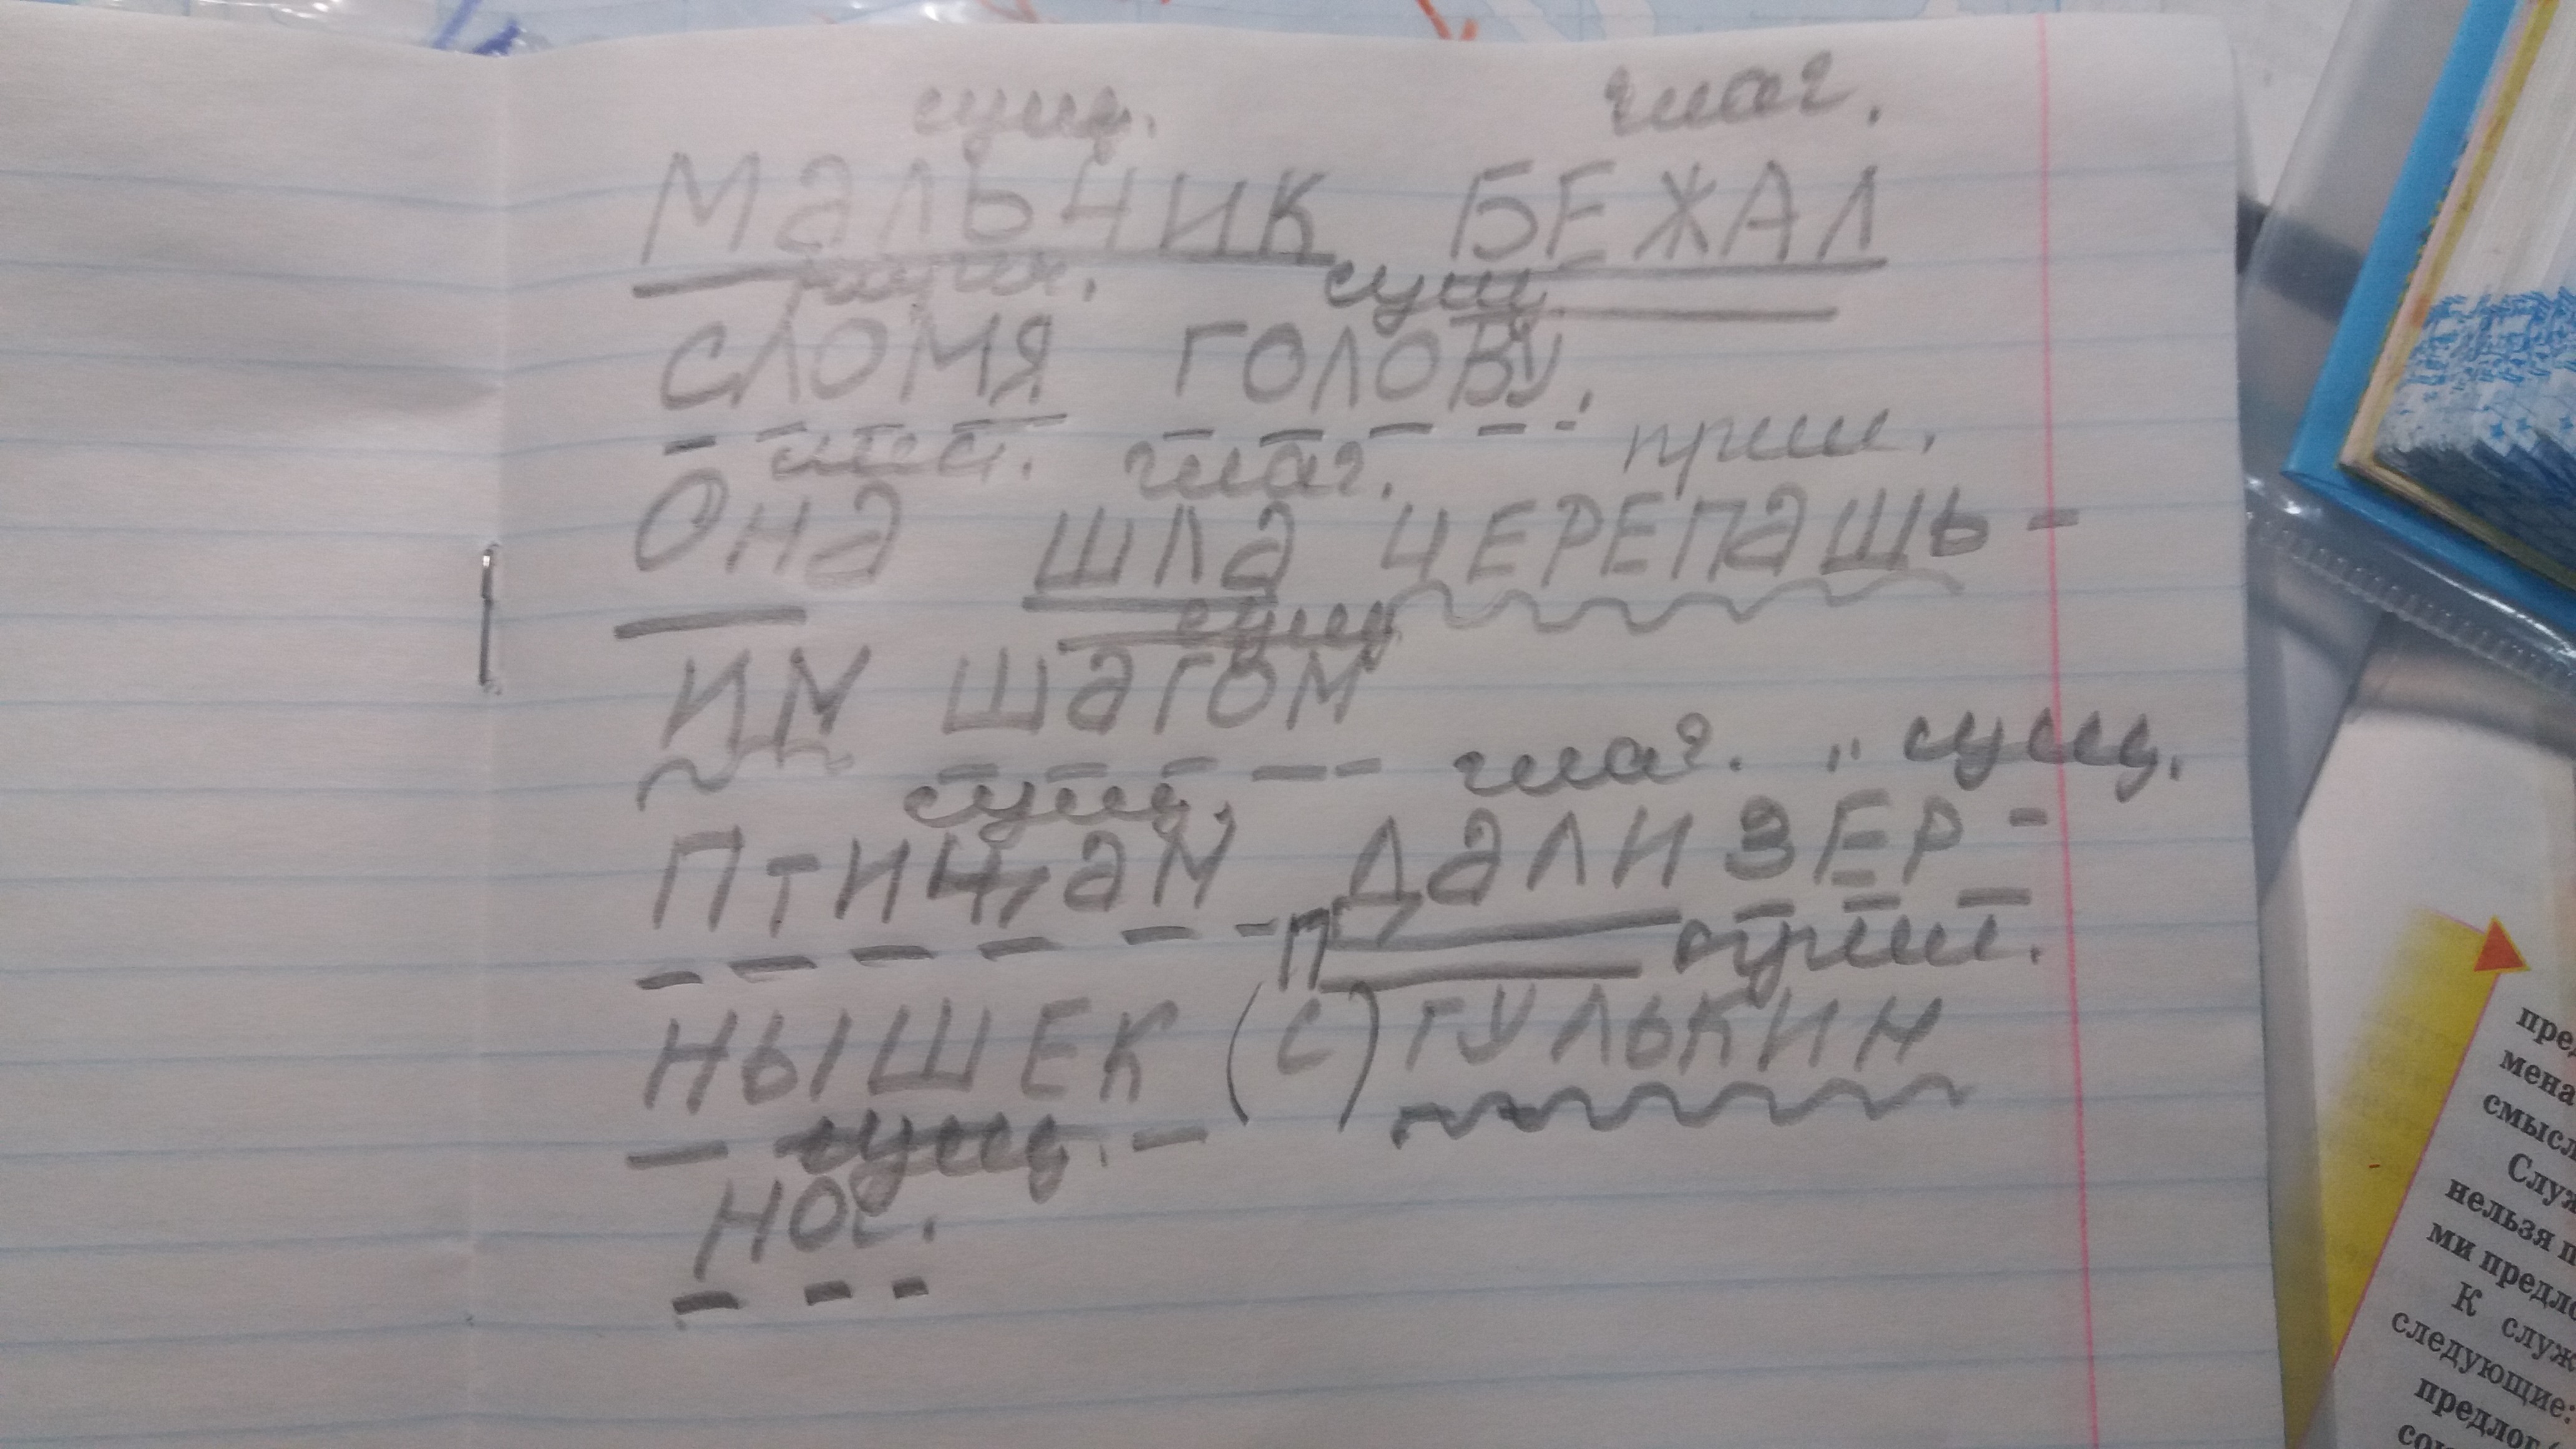 сущ. глаг.
Мальчик БЕЖАЛ
сущ.
сломя голову.
глаг. прил.
Она шла черепашь-
сущ
им шагом
сущ. глаг. сущ.
Птицам дали зер-
п прил.
нышек (с) гулькин
сущ.
нос.
пред
мена
смысл
Служ
нельзя п
ми предло
К служ
следующие:
предлог